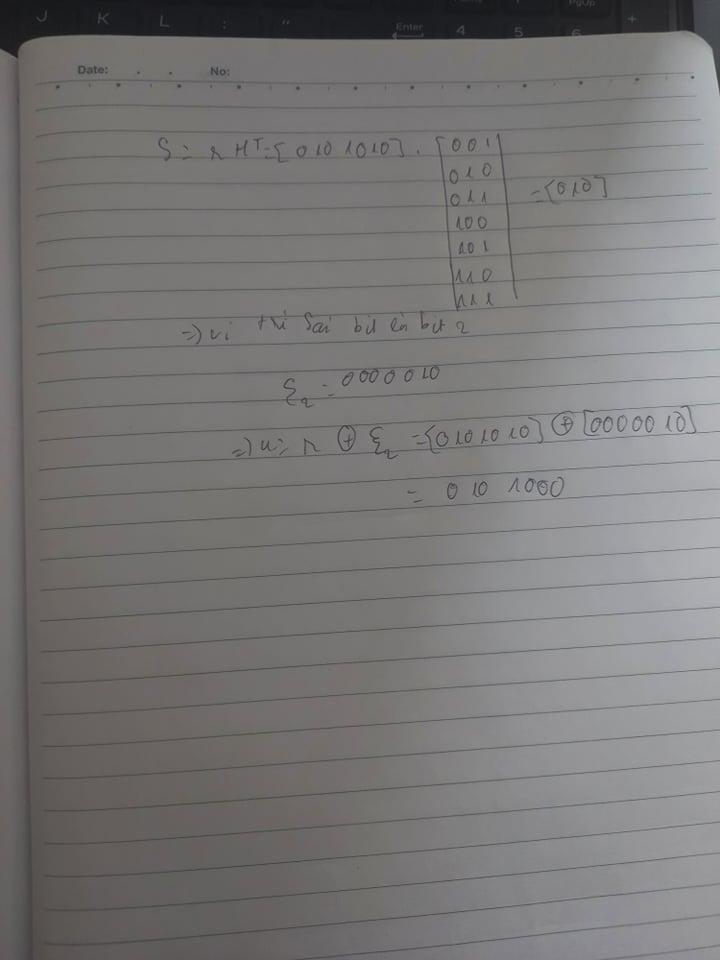 J K L : " Enter 4 5 6 PgUp +
Date: . . No:
S = r Hᵀ = [010 1010] . [001
010
011
100
101
110
111] = [010]
=> vị trí sai bit là bit 2
ξ₂ = 0000010
=> u = r ⊕ ξ₂ = [0101010] ⊕ [0000010]
= 010 1000